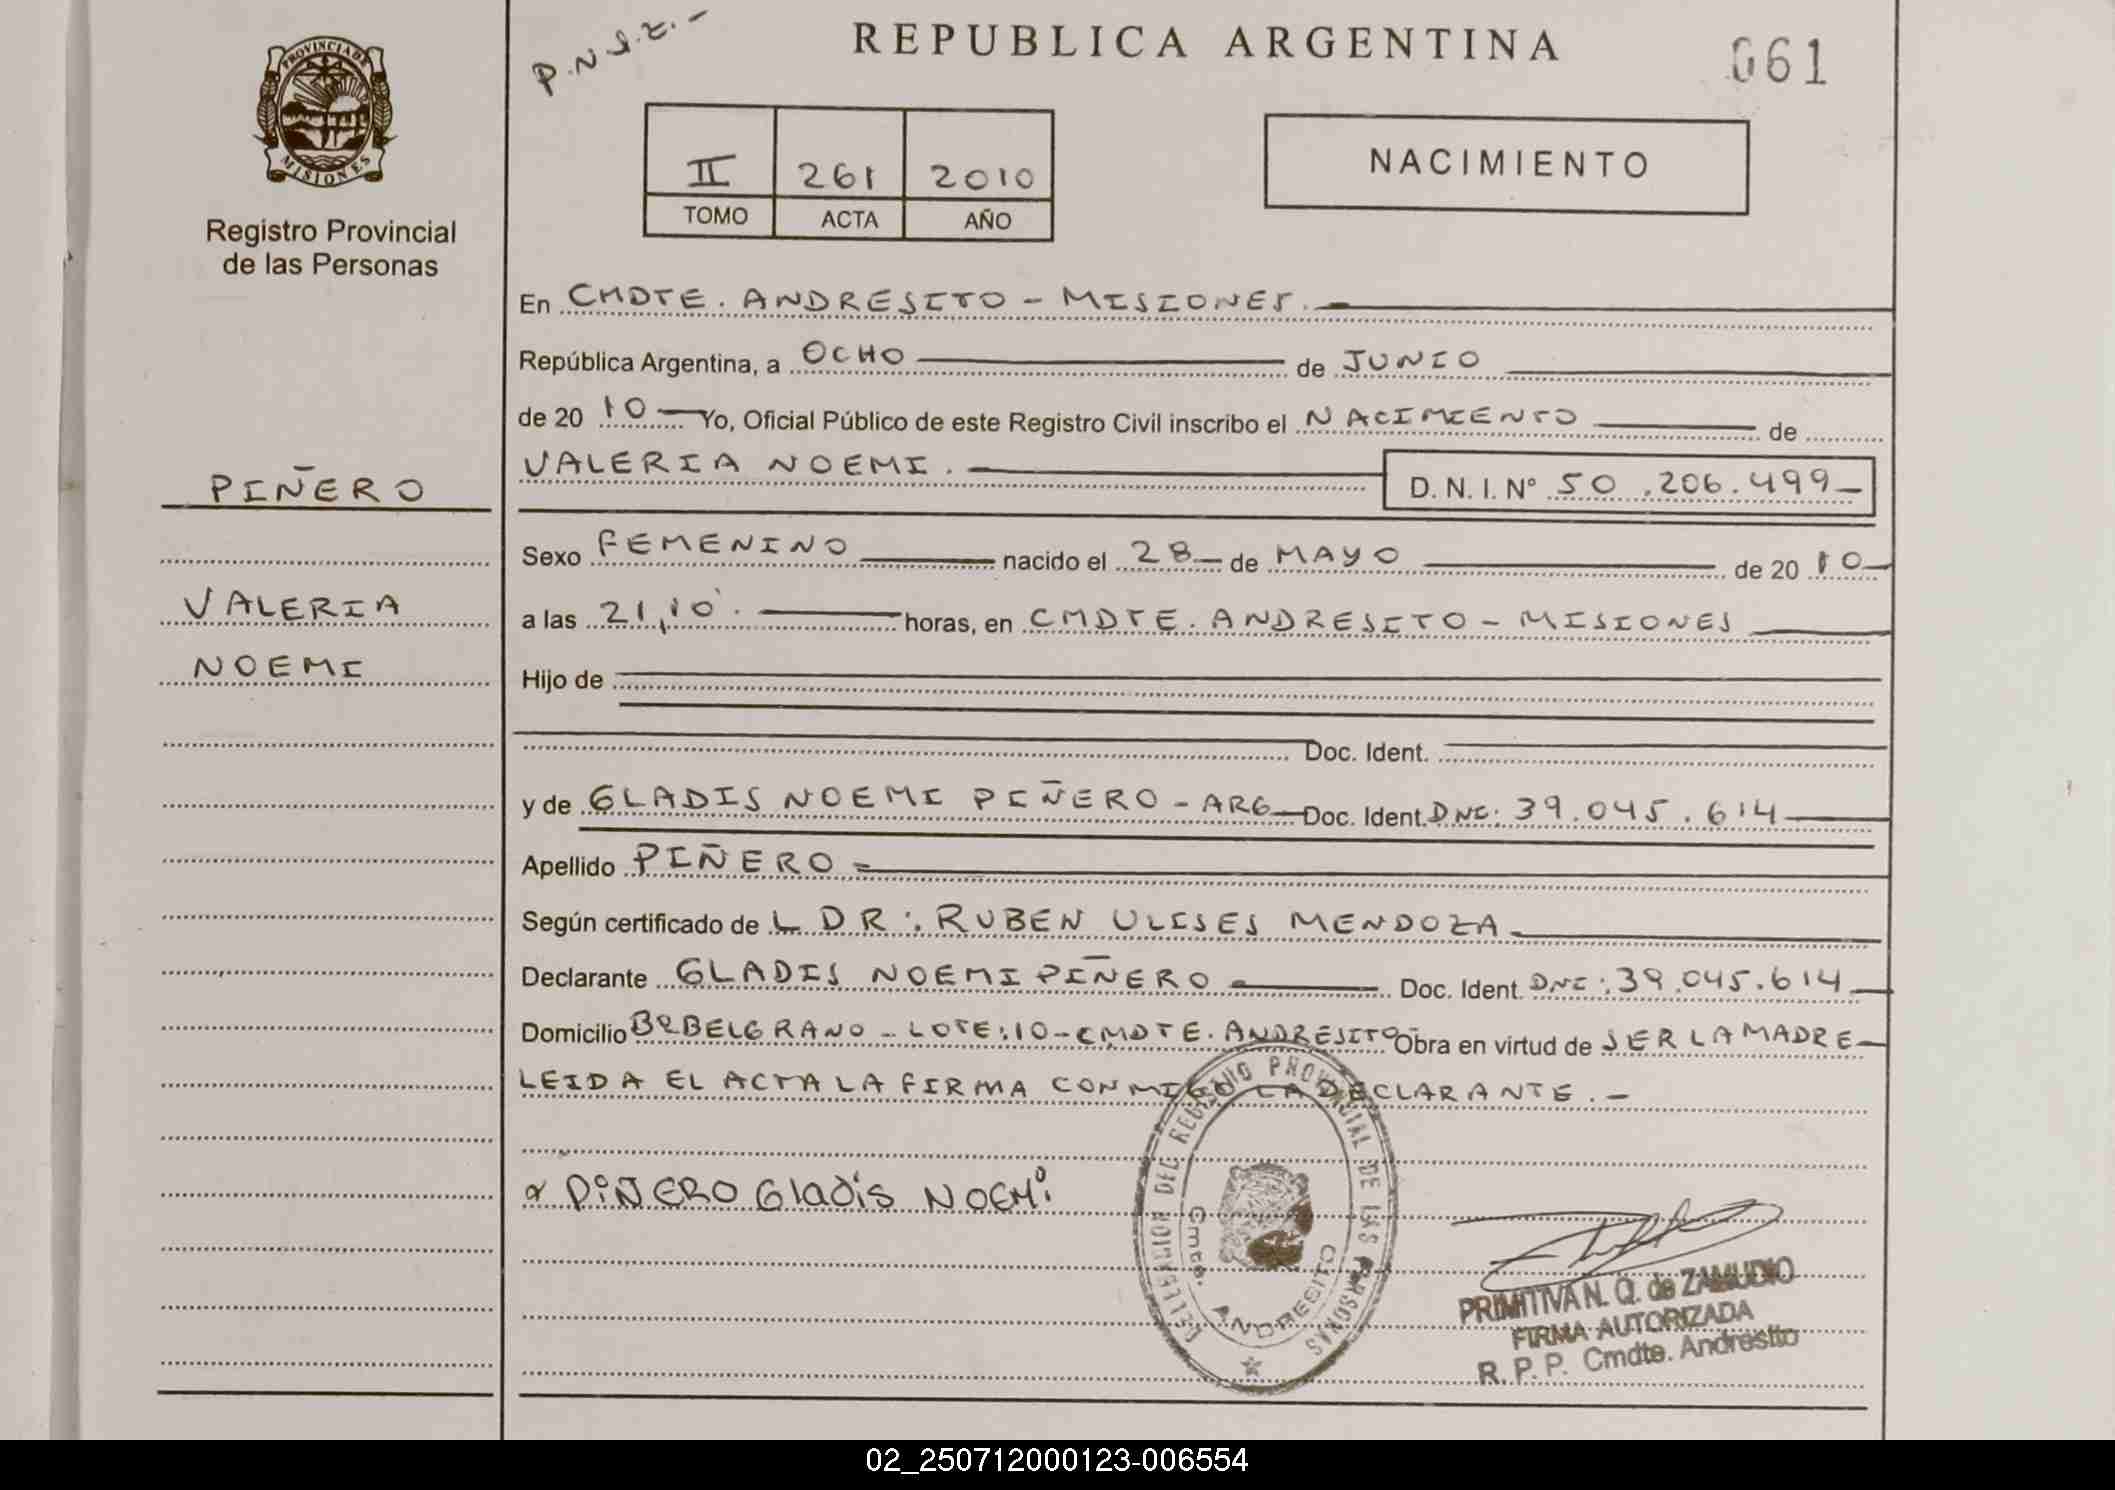 P.N.I.Z.-
REPUBLICA ARGENTINA
061
PROVINCIA DE
MISIONES
Registro Provincial
de las Personas
II 261 2010
TOMO ACTA AÑO
NACIMIENTO
En CMDTE. ANDRESITO - MISIONES.
República Argentina, a OCHO de JUNIO
de 20 10 Yo, Oficial Público de este Registro Civil inscribo el NACIMIENTO de
VALERIA NOEMI. D. N. I. Nº 50.206.499
PIÑERO
Sexo FEMENINO nacido el 28 de MAYO de 20 10
VALERIA
a las 21,10. horas, en CMDTE. ANDRESITO - MISIONES
NOEMI
Hijo de
Doc. Ident.
y de GLADIS NOEMI PIÑERO - ARG Doc. Ident. DNI: 39.045.614
Apellido PIÑERO
Según certificado de L DR. RUBEN ULISES MENDOZA
Declarante GLADIS NOEMI PIÑERO Doc. Ident. DNI: 39.045.614
Domicilio Bº BELGRANO - LOTE: 10 - CMDTE. ANDRESITO Obra en virtud de SER LA MADRE
LEIDA EL ACTA LA FIRMA CONMIGO LA DECLARANTE. -
PiÑERO Gladis NOEMi
DELEGACION DEL REGISTRO PROVINCIAL DE LAS PERSONAS
Cmte. ANDRESITO
PRIMITIVA N. Q. de ZAMUDIO
FIRMA AUTORIZADA
R. P. P. Cmdte. Andresito
02_250712000123-006554